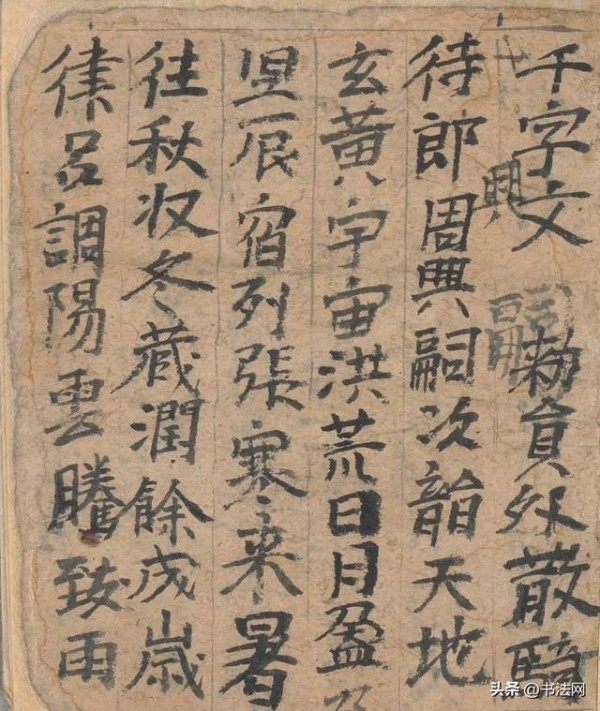 千字文 勑員外散騎
興
嗣
待郎周興嗣次天地
玄黃宇宙洪荒日月盈
昃辰宿列張寒来暑
往秋収冬藏潤餘成歳
律呂調陽雲騰致雨
头条 @书法网